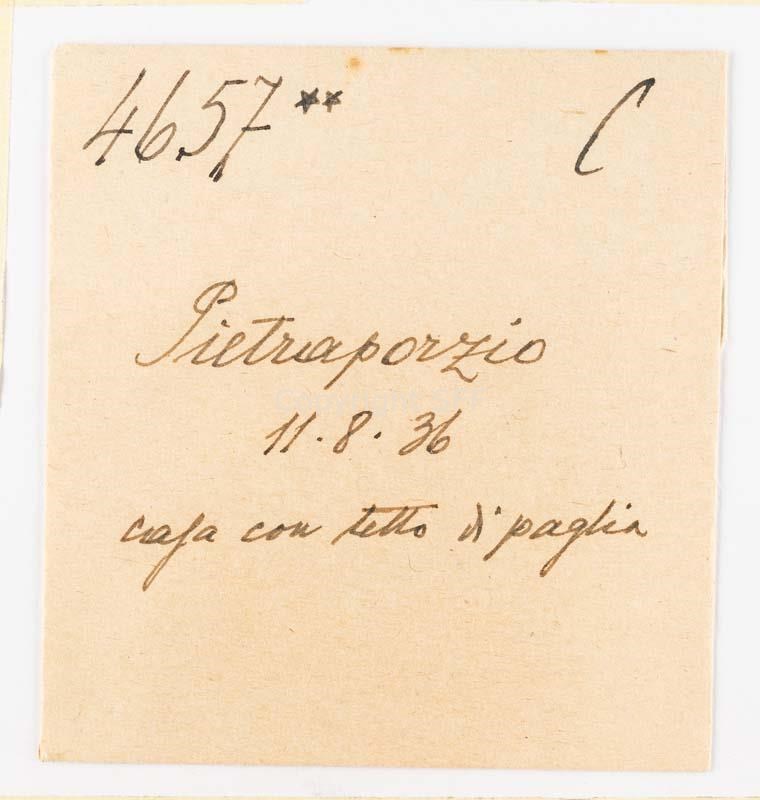 4657** C
Pietraporzio
11.8.36
casa con tetto di paglia